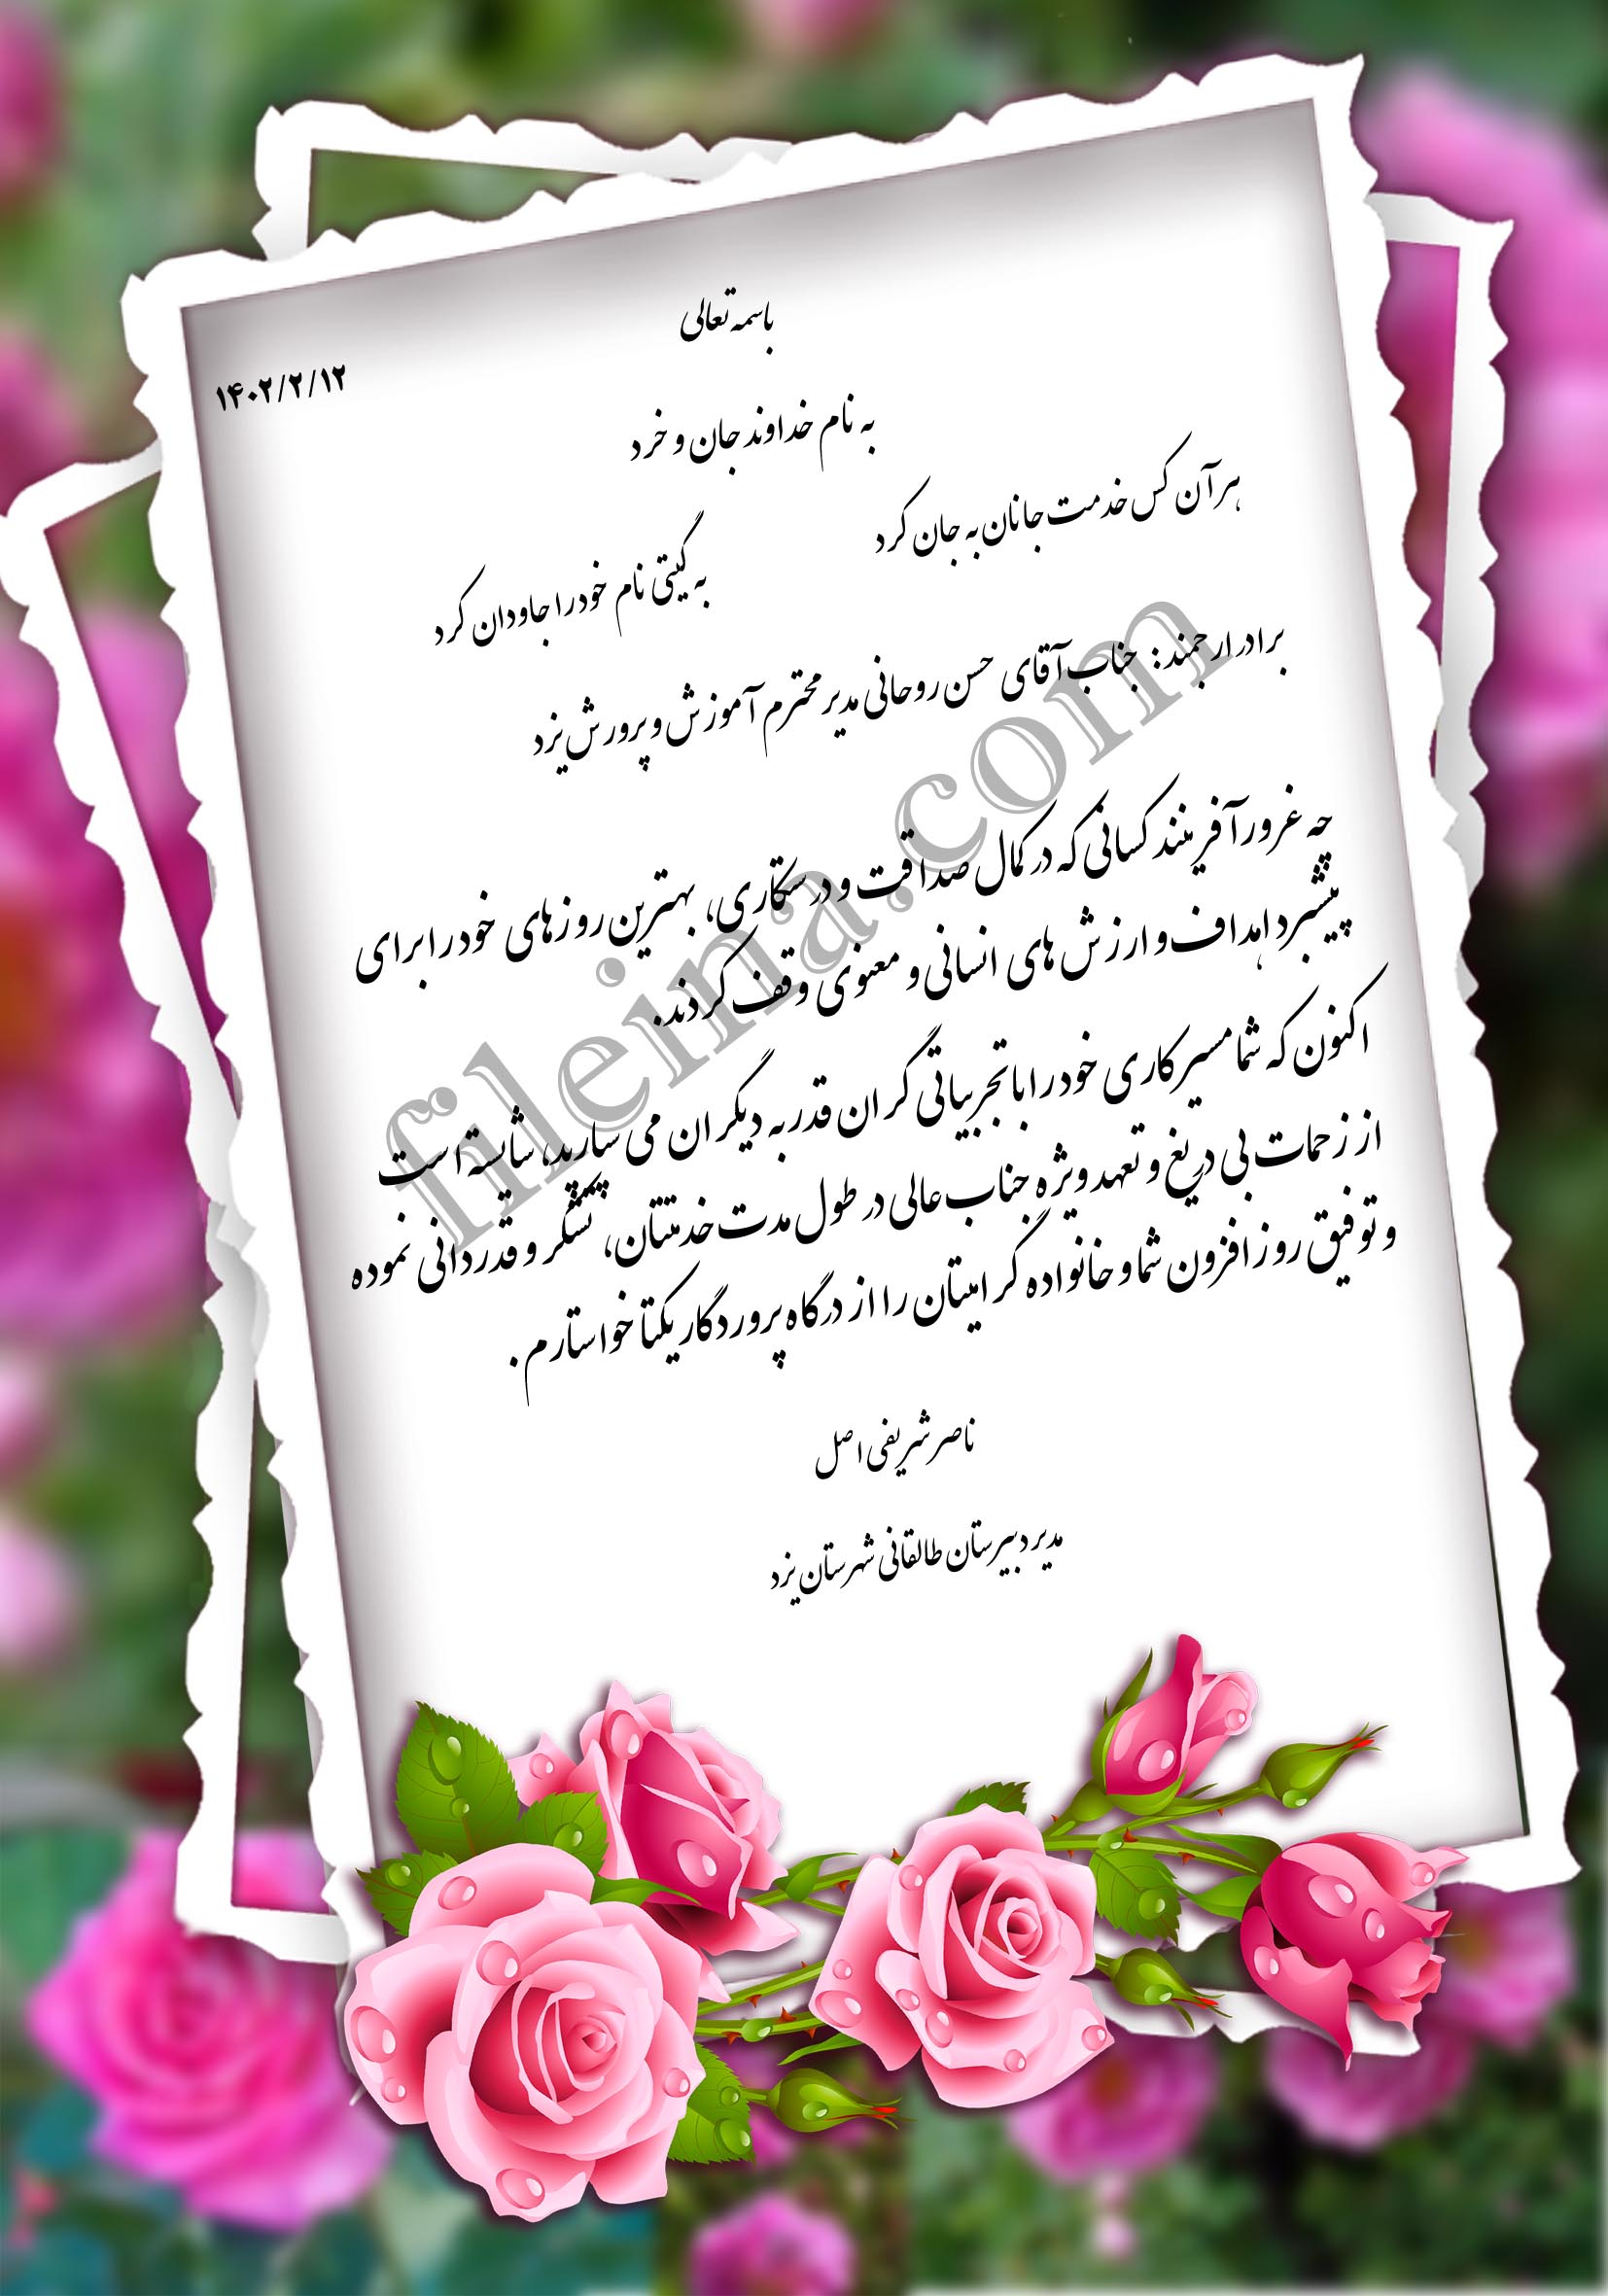 باسمه تعالی
۱۴۰۲/۲/۱۲
به نام خداوند جان و خرد
هر آن کس خدمت جانان به جان کرد
به گیتی نام خود را جاودان کرد
برادر ارجمند: جناب آقای حسن روحانی مدیر محترم آموزش و پرورش یزد
چه غرور آفرینند کسانی که در کمال صداقت و درستکاری، بهترین روزهای خود را برای
پیشبرد اهداف و ارزش های انسانی و معنوی وقف کردند.
اکنون که شما مسیر کاری خود را با تجربیاتی گران قدر به دیگران می سپارید، شایسته است
از زحمات بی دریغ و تعهد ویژه جناب عالی در طول مدت خدمتتان، تشکر و قدردانی نموده
و توفیق روز افزون شما و خانواده گرامیتان را از درگاه پروردگار یکتا خواستارم .
ناصر شریفی اصل
مدیر دبیرستان طالقانی شهرستان یزد
fileina.com